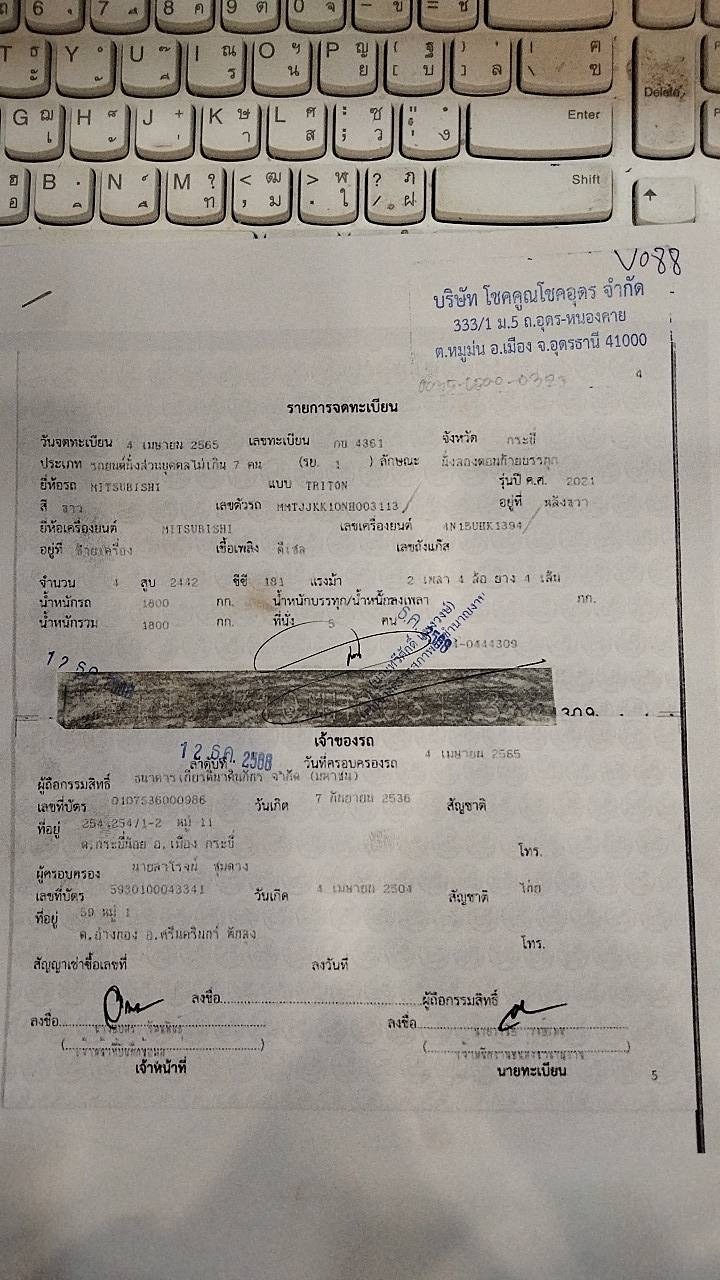 6 7 8 ค 9 ต 0 จ - ข = ช
T Y U I ณ ร O ฯ น P ญ ย [ ฐ บ ] ล \ ฃ
G ฌ เ H J K ษ า L ศ ส ; ซ ว ง Enter Delete
B N M ท < ฒ , ม > . ฬ ใ ? / ฦ ฝ Shift ↑
V088
บริษัท โชคคูณโชคอุดร จำกัด
333/1 ม.5 ถ.อุดร-หนองคาย
ต.หมูม่น อ.เมือง จ.อุดรธานี 41000
4
รายการจดทะเบียน
วันจดทะเบียน 4 เมษายน 2565 เลขทะเบียน กบ 4361 จังหวัด กระบี่
ประเภท รถยนต์นั่งส่วนบุคคลไม่เกิน 7 คน (รย. 1 ) ลักษณะ นั่งสองตอนท้ายบรรทุก
ยี่ห้อรถ MITSUBISHI แบบ TRITON รุ่นปี ค.ศ. 2021
สี ขาว เลขตัวรถ MMTJJKK10NH003113 อยู่ที่ หลังขวา
ยี่ห้อเครื่องยนต์ MITSUBISHI เลขเครื่องยนต์ 4N15UHK1394
อยู่ที่ ซ้ายเครื่อง เชื้อเพลิง ดีเซล เลขถังแก๊ส
จำนวน 4 สูบ 2442 ซีซี 181 แรงม้า 2 เพลา 4 ล้อ ยาง 4 เส้น
น้ำหนักรถ 1800 กก. น้ำหนักบรรทุก/น้ำหนักลงเพลา กก.
น้ำหนักรวม 1800 กก. ที่นั่ง 5 คน
-0444309
12 ธ.ค.
เจ้าของรถ
12 ธ.ค. 2568
ลำดับที่ วันที่ครอบครองรถ 4 เมษายน 2565
ผู้ถือกรรมสิทธิ์ ธนาคารเกียรตินาคินภัทร จำกัด (มหาชน)
เลขที่บัตร 0107536000986 วันเกิด 7 กันยายน 2536 สัญชาติ
ที่อยู่ 254,254/1-2 หมู่ 11
ต.กระบี่น้อย อ.เมือง กระบี่
โทร.
ผู้ครอบครอง นายสาโรจน์ ชุมดวง
เลขที่บัตร 5930100043341 วันเกิด 4 เมษายน 2504 สัญชาติ ไทย
ที่อยู่ 59 หมู่ 1
ต.อ่างทอง อ.ศรีนครินทร์ พัทลุง
โทร.
สัญญาเช่าซื้อเลขที่ ลงวันที่
ลงชื่อ ผู้ถือกรรมสิทธิ์
ลงชื่อ ลงชื่อ
เจ้าหน้าที่ นายทะเบียน
5